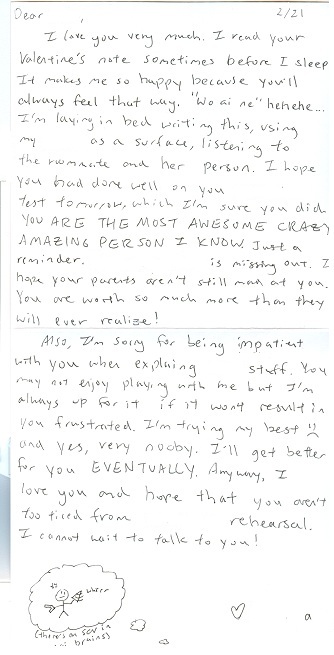 Dear 2/21
I love you very much. I read your
Valentine's note sometimes before I sleep
It makes me so happy because you'll
always feel that way. "Wo ai ne" hehehe...
I'm laying in bed writing this, using
my as a surface, listening to
the roommate and her person. I hope
you had done well on you
test tomorrow, which I'm sure you did
YOU ARE THE MOST AWESOME CRAZY
AMAZING PERSON I KNOW Just a
reminder. is missing out. I
hope your parents aren't still mad at you.
You are worth so much more than they
will ever realize!
Also, I'm sorry for being impatient
with you when explaing stuff. You
may not enjoy playing with me but I'm
always up for it if it won't result in
you frustrated. I'm trying my best
and yes, very nooby. I'll get better
for you EVENTUALLY. Anyway, I
love you and hope that you aren't
too tired from rehearsal.
I cannot wait to talk to you!
(there's an SCV in
brains)
a